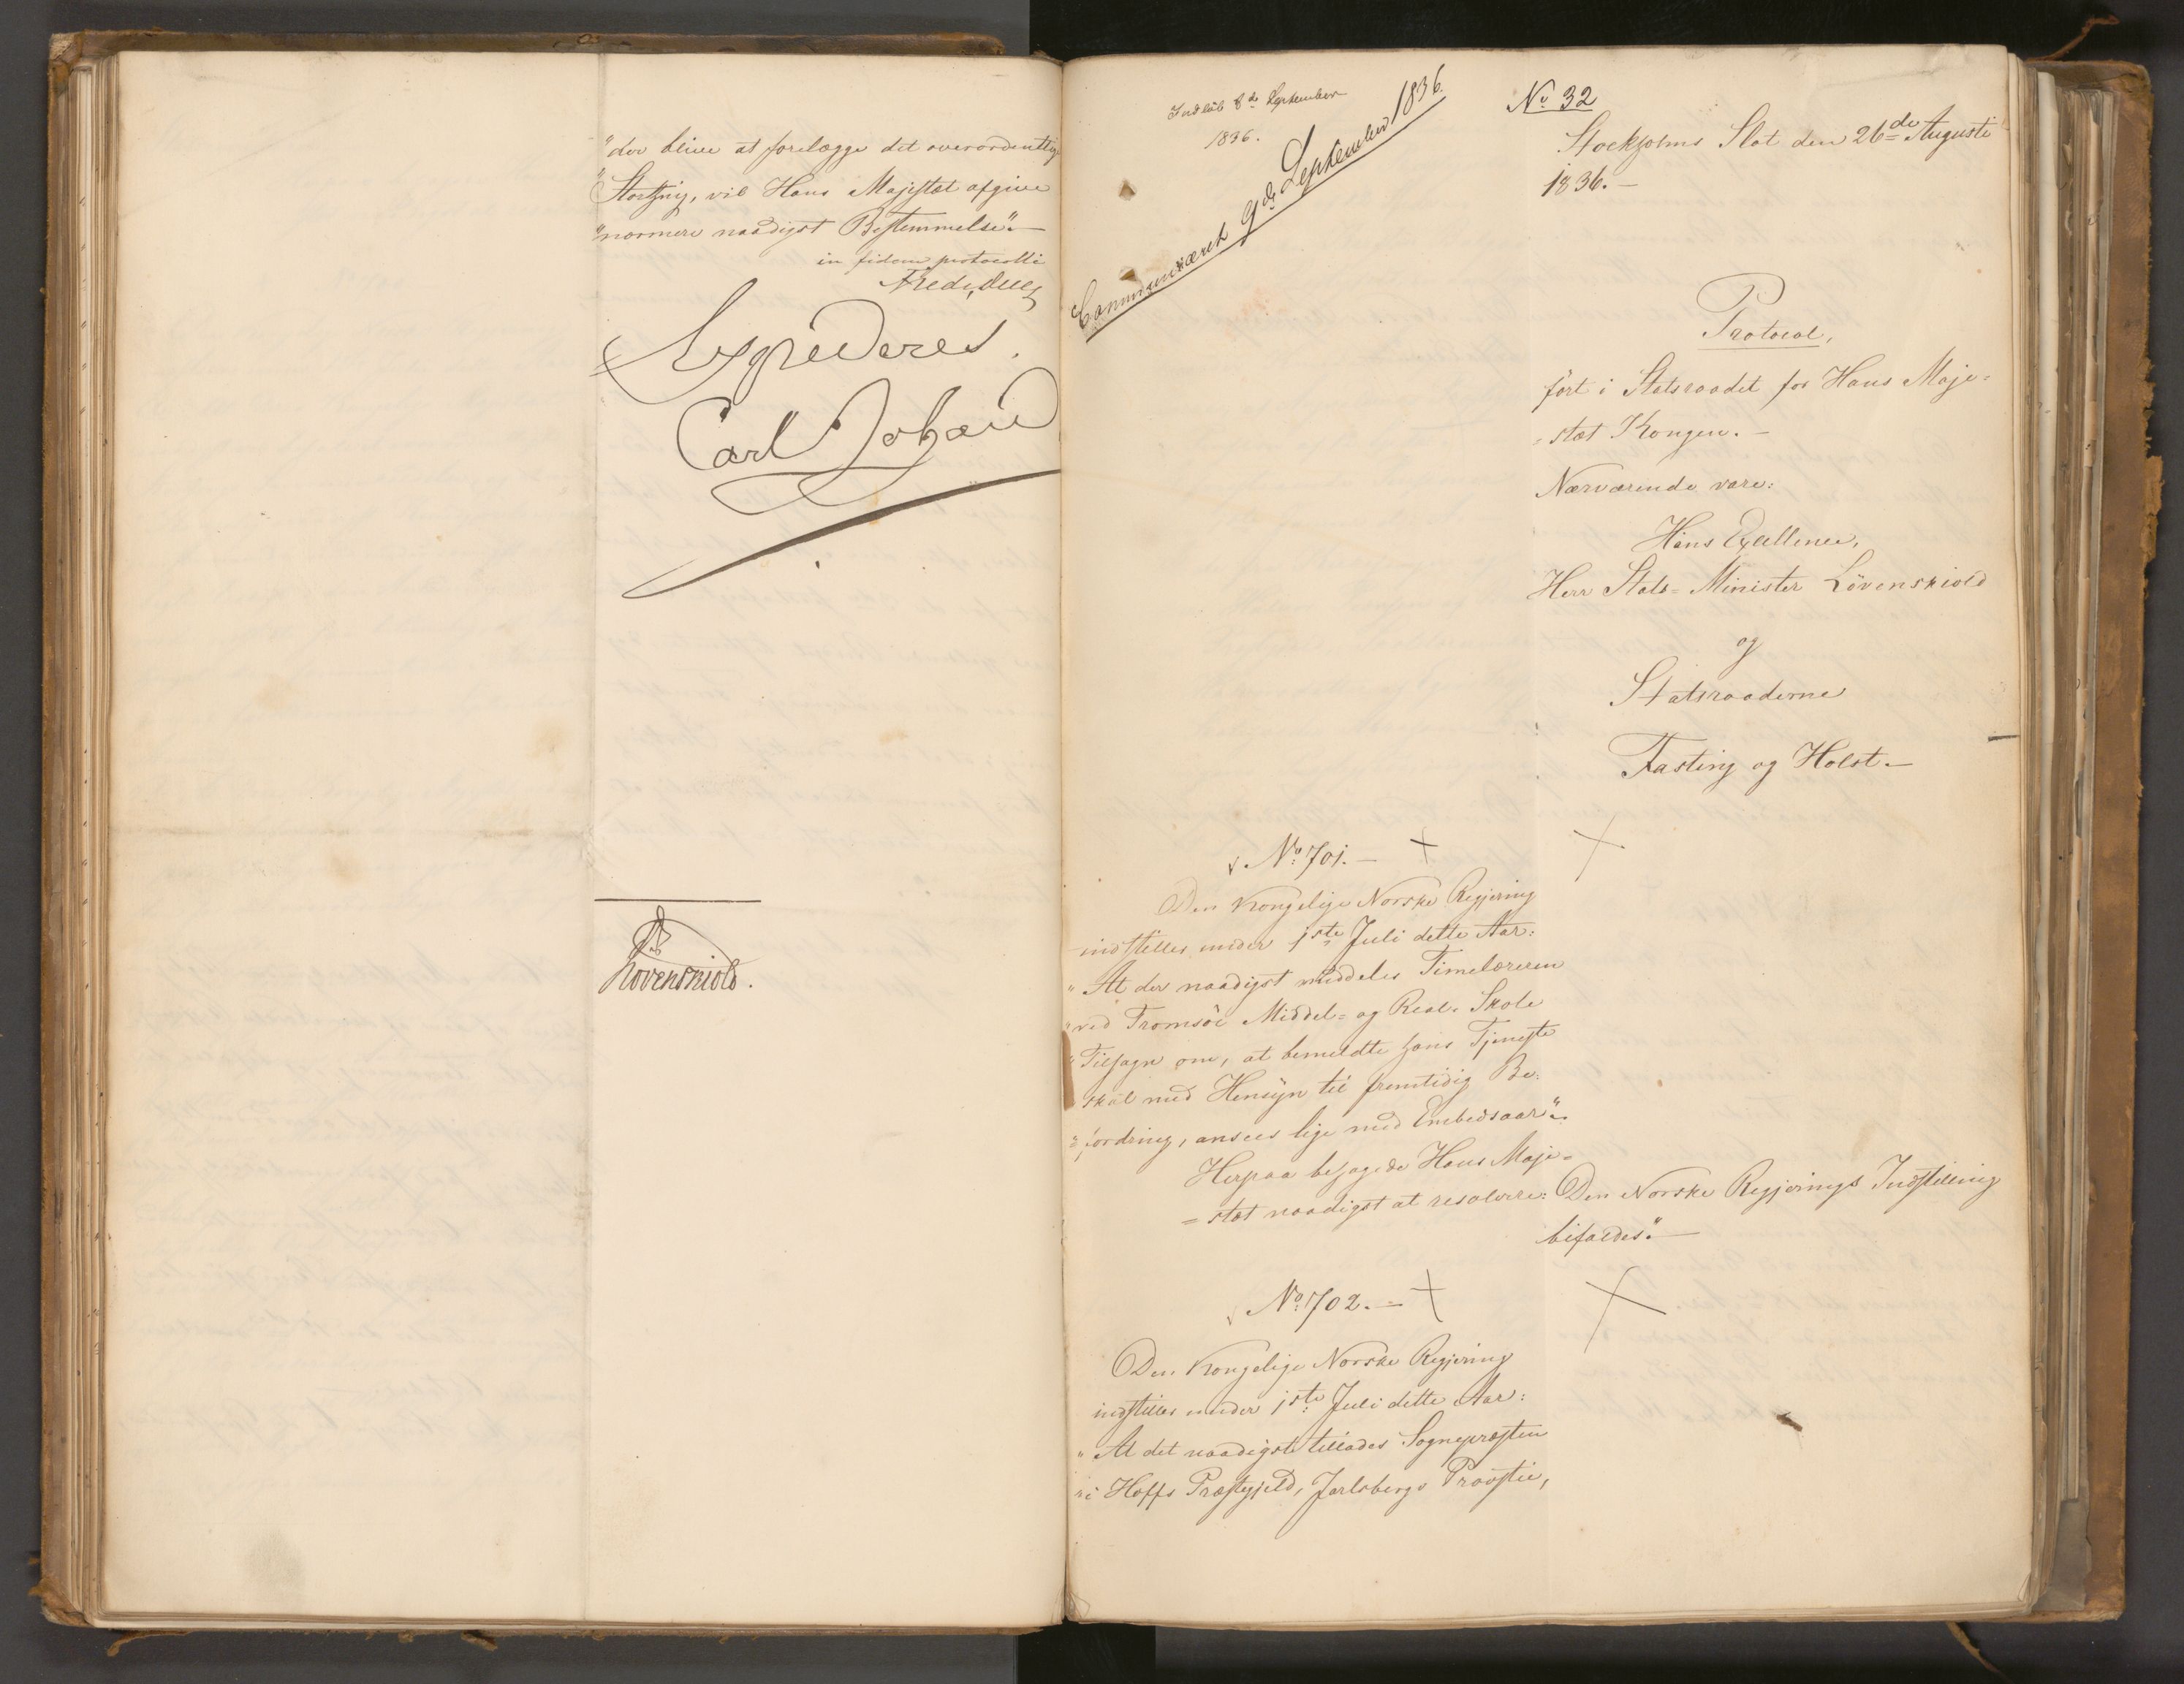 "der bliver at forelægge det overordentlige
"Storthing, vil Hans Majestæt afgive
"nærmere naadigst Bestemmelse".—
in fidem protocolli
Fred. Due
Expederes.
Carl Johan
Løvenskiold.
Indløb 8de September
1836.
Communiceret 9de September 1836.
No 32
Stockholms Slot den 26de Augusti
1836.—
Protocol,
ført i Statsraadet for Hans Maje=
=stæt Kongen.—
Nærværende vare:
Hans Excellence,
Herr Stats=Minister Lövenskiold
og
Statsraaderne
Fasting og Holst.—
No 701.—
Den Kongelige Norske Regjering
indstiller under 1ste Juli dette Aar:
"At der naadigst meddeles Timelæreren
"ved Tromsöe Middel= og Real-Skole
"Tilsagn om, at bemeldte hans Tjeneste
"skal med Hensyn til fremtidig Be=
"fordring, ansees lige med Embedsaar".
Herpaa behagede Hans Maje=
=stæt naadigst at resolvere: Den Norske Regjerings Indstilling
bifaldes".—
No 702.—
Den Kongelige Norske Regjering
indstiller under 1ste Juli dette Aar:
"At det naadigst tillades Sognepræsten
"i Hoffs Præstegjeld, Jarlsbergs Provstie,